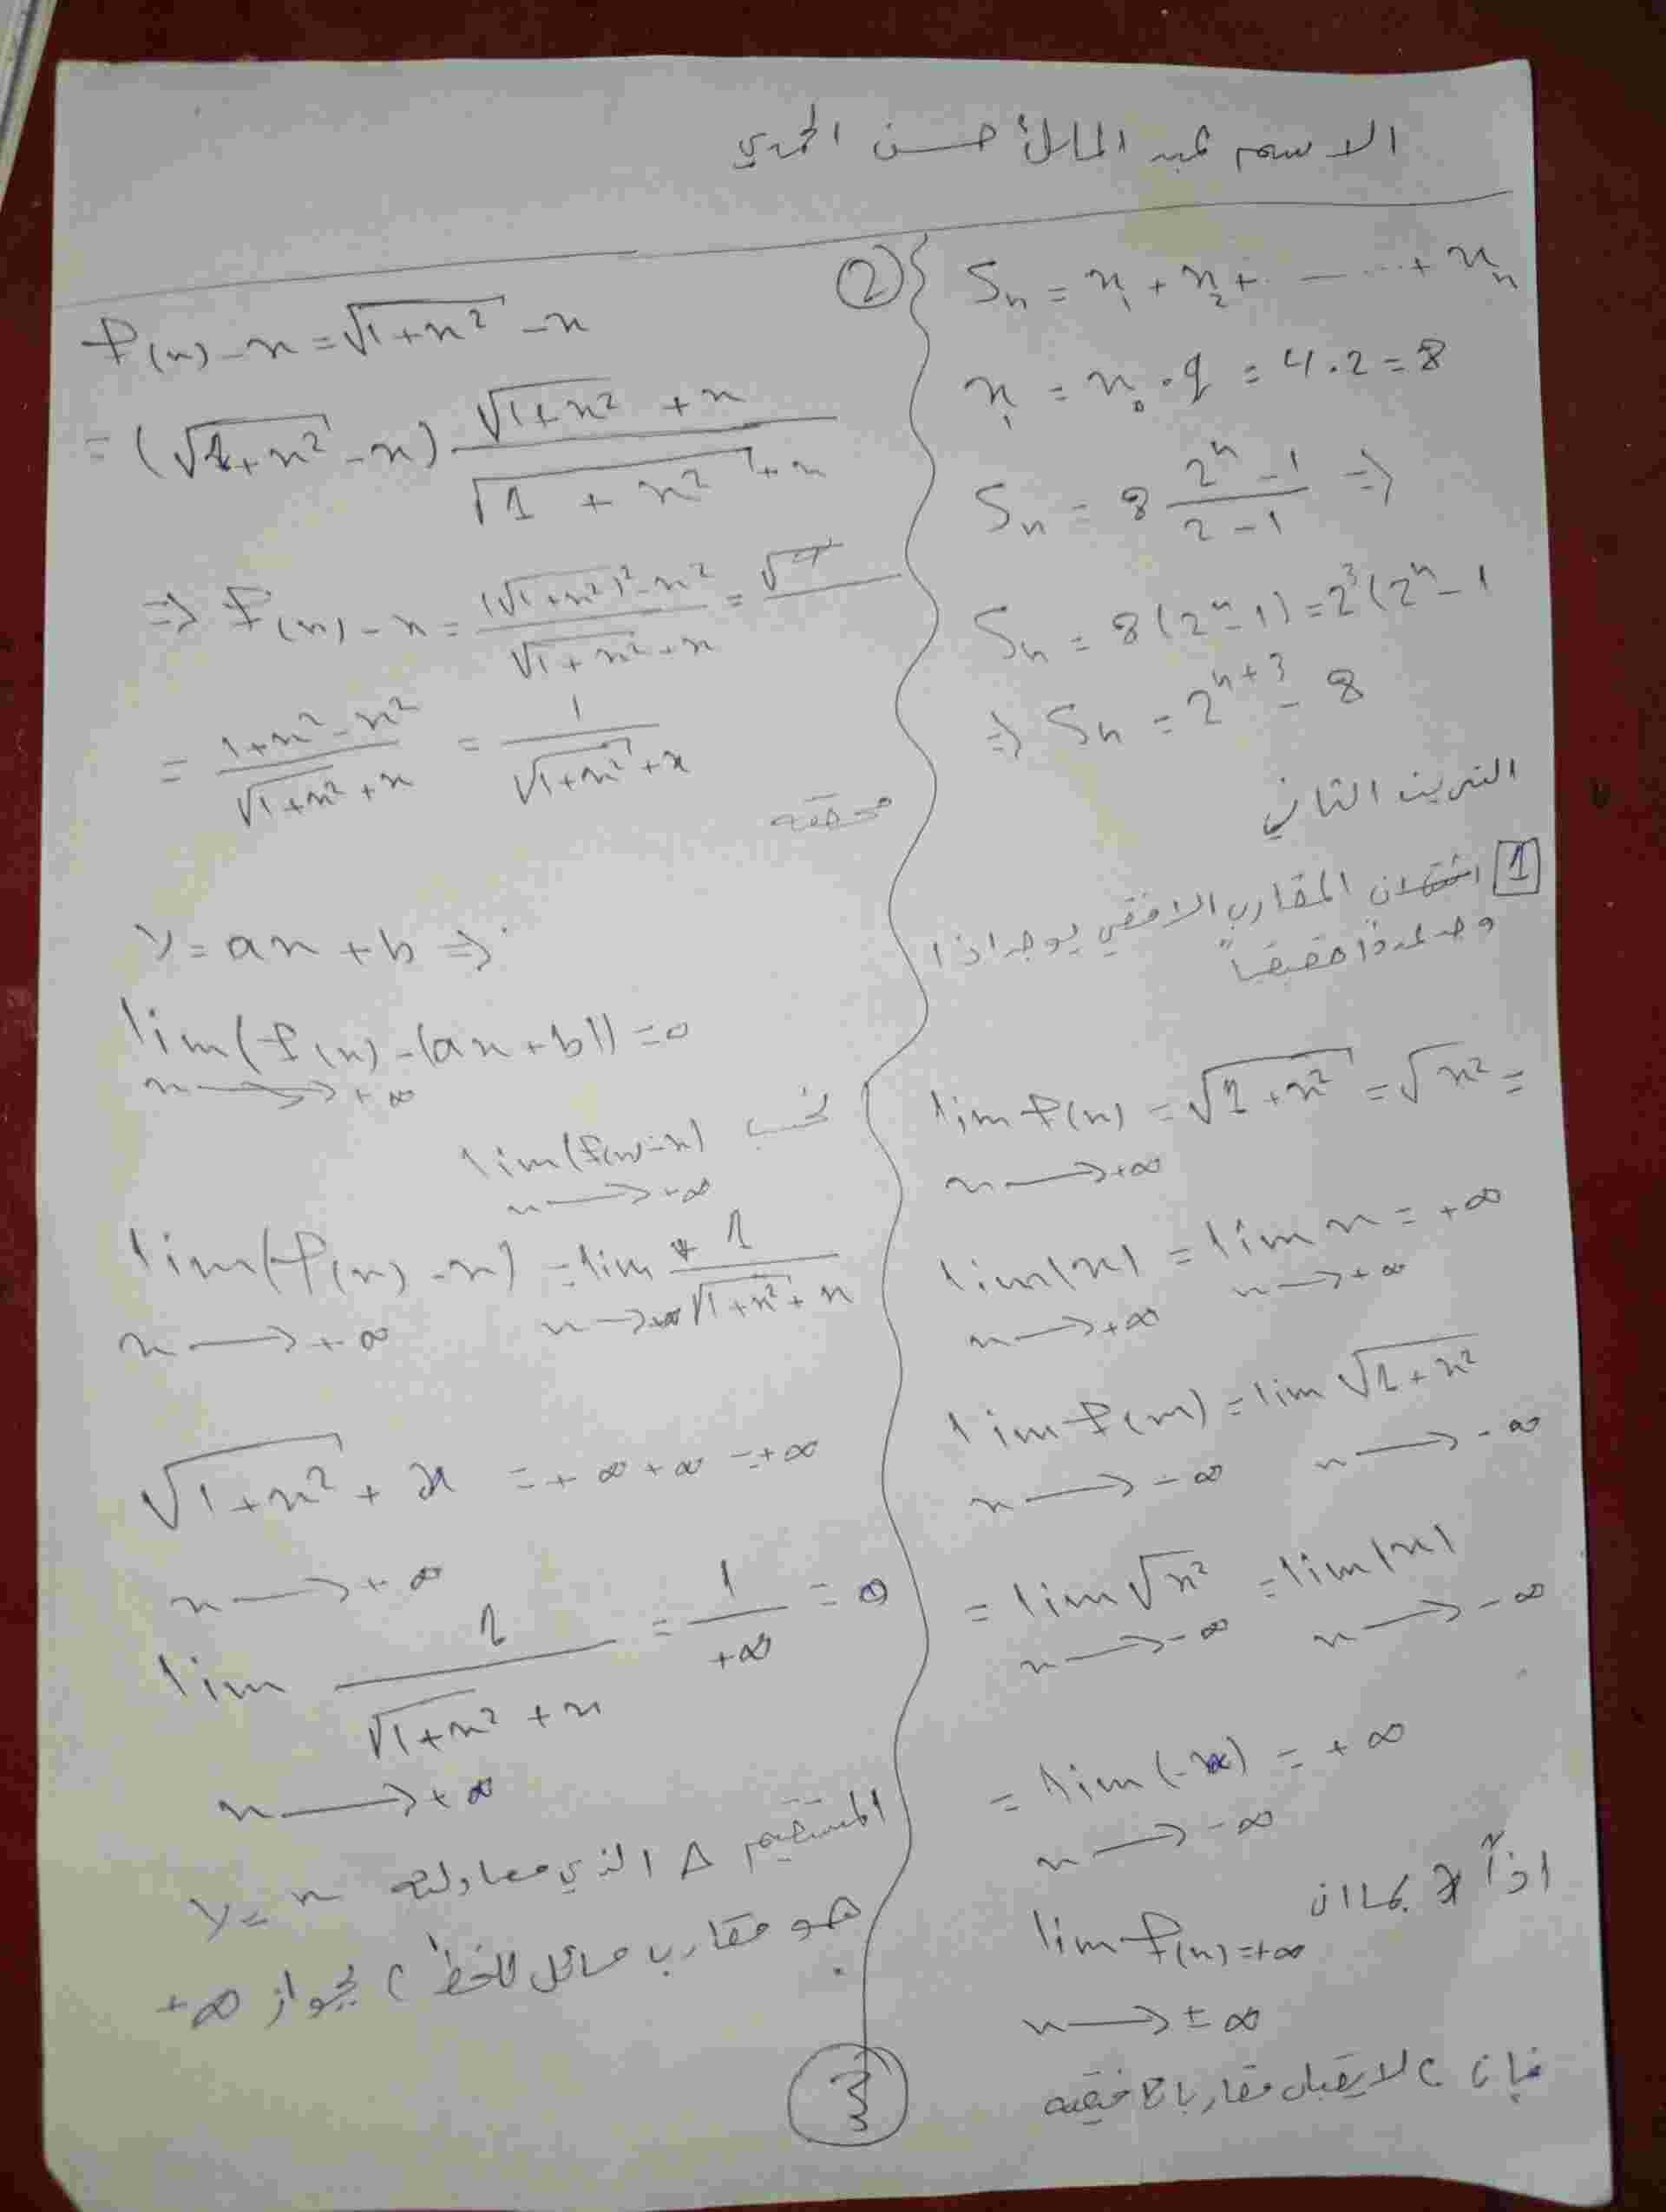 الاسم عبد المالك حسن الحمدي
Sₙ = x₁ + x₂ + . - ... + xₙ
x₁ = x₀ . q = 4 . 2 = 8
Sₙ = 8 (2ⁿ - 1)/(2 - 1) ⇒
Sₙ = 8(2ⁿ - 1) = 2³(2ⁿ - 1
⇒ Sₙ = 2ⁿ⁺³ - 8
التمرين الثاني
1 ان المقارب الافقي يوجد اذا
وجد عدداً حقيقياً
lim f(x) = √(1 + x²) = √x² =
x → +∞
lim |x| = lim x = +∞
x → +∞ x → +∞
lim f(x) = lim √(1 + x²)
x → -∞ x → -∞
= lim √x² = lim |x|
x → -∞ x → -∞
= lim (-x) = +∞
x → -∞
اذاً بما ان
lim f(x) = +∞
x → ± ∞
فإن c لا يقبل مقاربات افقيه
② f(x) - x = √(1 + x²) - x
= (√(1 + x²) - x) (√(1 + x²) + x)/(√(1 + x²) + x)
⇒ f(x) - x = ((√(1 + x²))² - x²)/(√(1 + x²) + x) =
= (1 + x² - x²)/(√(1 + x²) + x) = 1/(√(1 + x²) + x)
محققه
y = ax + b ⇒
lim (f(x) - (ax + b)) = 0
x → +∞
نحسب lim (f(x) - x)
x → +∞
lim (f(x) - x) = lim 1/(√(1 + x²) + x)
x → +∞ x → +∞
√(1 + x²) + x = +∞ + ∞ = +∞
x → +∞
lim 1/(√(1 + x²) + x) = 1/+∞ = 0
x → +∞
المستقيم Δ الذي معادلته y = x
هو مقارب مائل للخط c بجوار +∞
3